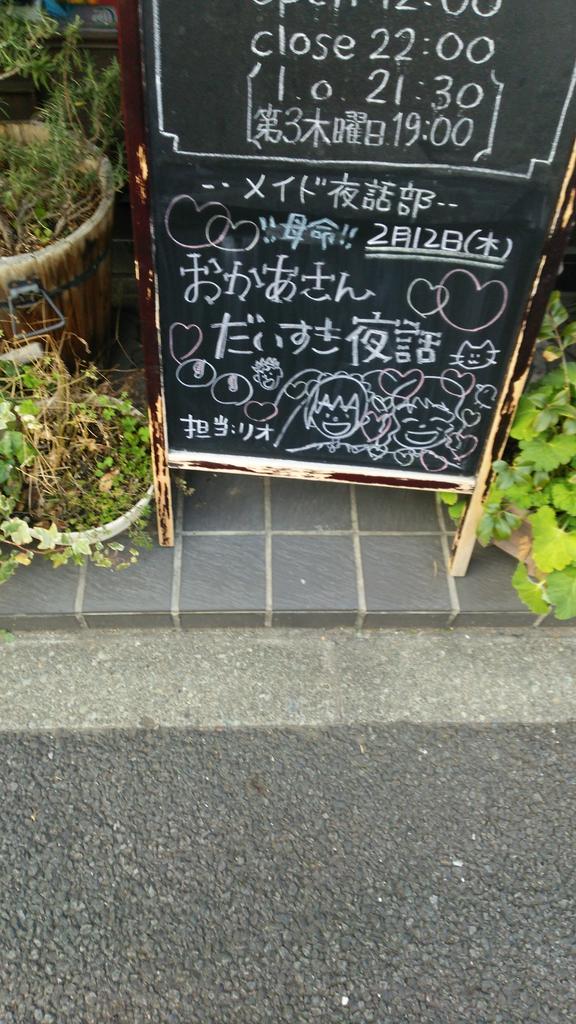 open 12:00
close 22:00
l.o. 21:30
第3木曜日19:00
--メイド夜話部--
!!母命!! 2月12日(木)
おかあさん
だいすき夜話
担当:リオ